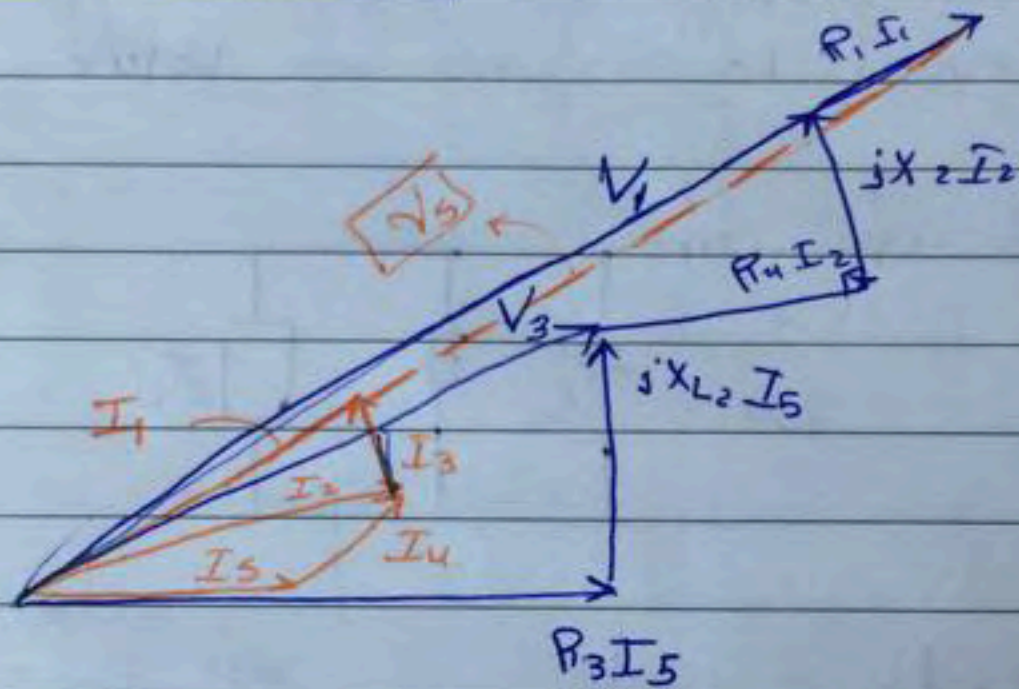 R₁I₁
jX₂I₂
V₁
Vs
R₄I₂
V₃
jXL₂I₅
I₁
I₃
I₂
I₅
I₄
R₃I₅